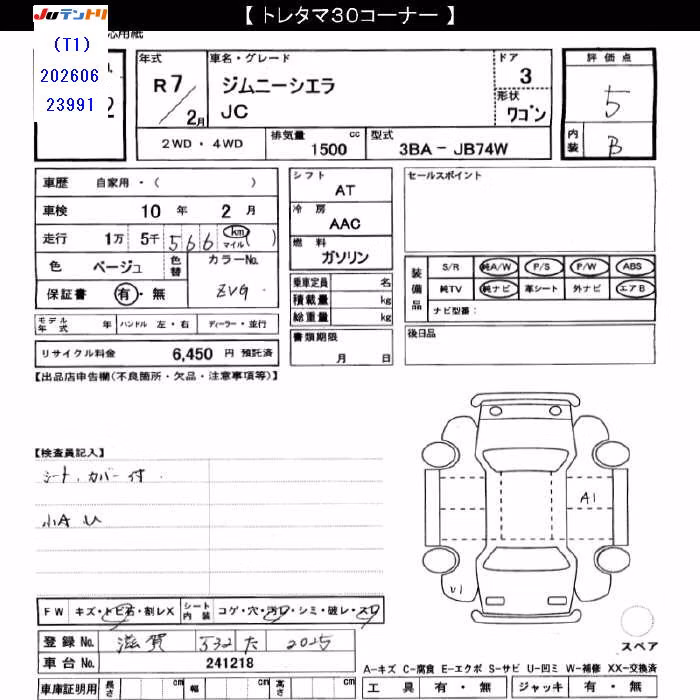 【 トレタマ30コーナー 】
JUテントリ
(T1)
202606
23991
応用紙
年式
R 7
2月
車名・グレード
ジムニーシエラ
JC
ドア
3
形状
ワゴン
評価点
5
内装
B
2WD ・ 4WD
排気量 1500 cc
型式 3BA - JB74W
車歴 自家用 ・ ( )
車検 10 年 2 月
走行 1万 5千 566 km マイル ( )
色 ベージュ 色替
カラーNo. ZVG
保証書 有・無
モデル年式 年 ハンドル 左・右 ディーラー・並行
リサイクル料金 6,450 円 預託済
シフト AT
冷房 AAC
燃料 ガソリン
乗車定員 名
積載量 kg
総重量 kg
書類期限 月 日
セールスポイント
装備品
S/R 純A/W P/S P/W ABS
純TV 純ナビ 革シート 外ナビ エアB
ナビ型番:
後日品
【出品店申告欄(不良箇所・欠品・注意事項等)】
【検査員記入】
シート.カバー付.
小A U
A1
V1
FW キズ・トビ石・割レX シート内装 コゲ・穴・汚レ・シミ・破レ・スレ
登録No. 滋賀 532 た 2025
車台No. 241218
車庫証明用 長さ cm 幅 cm 高さ cm
スペア
A-キズ C-腐食 E-エクボ S-サビ U-凹ミ W-補修 XX-交換済
工具 有・無 ジャッキ 有・無